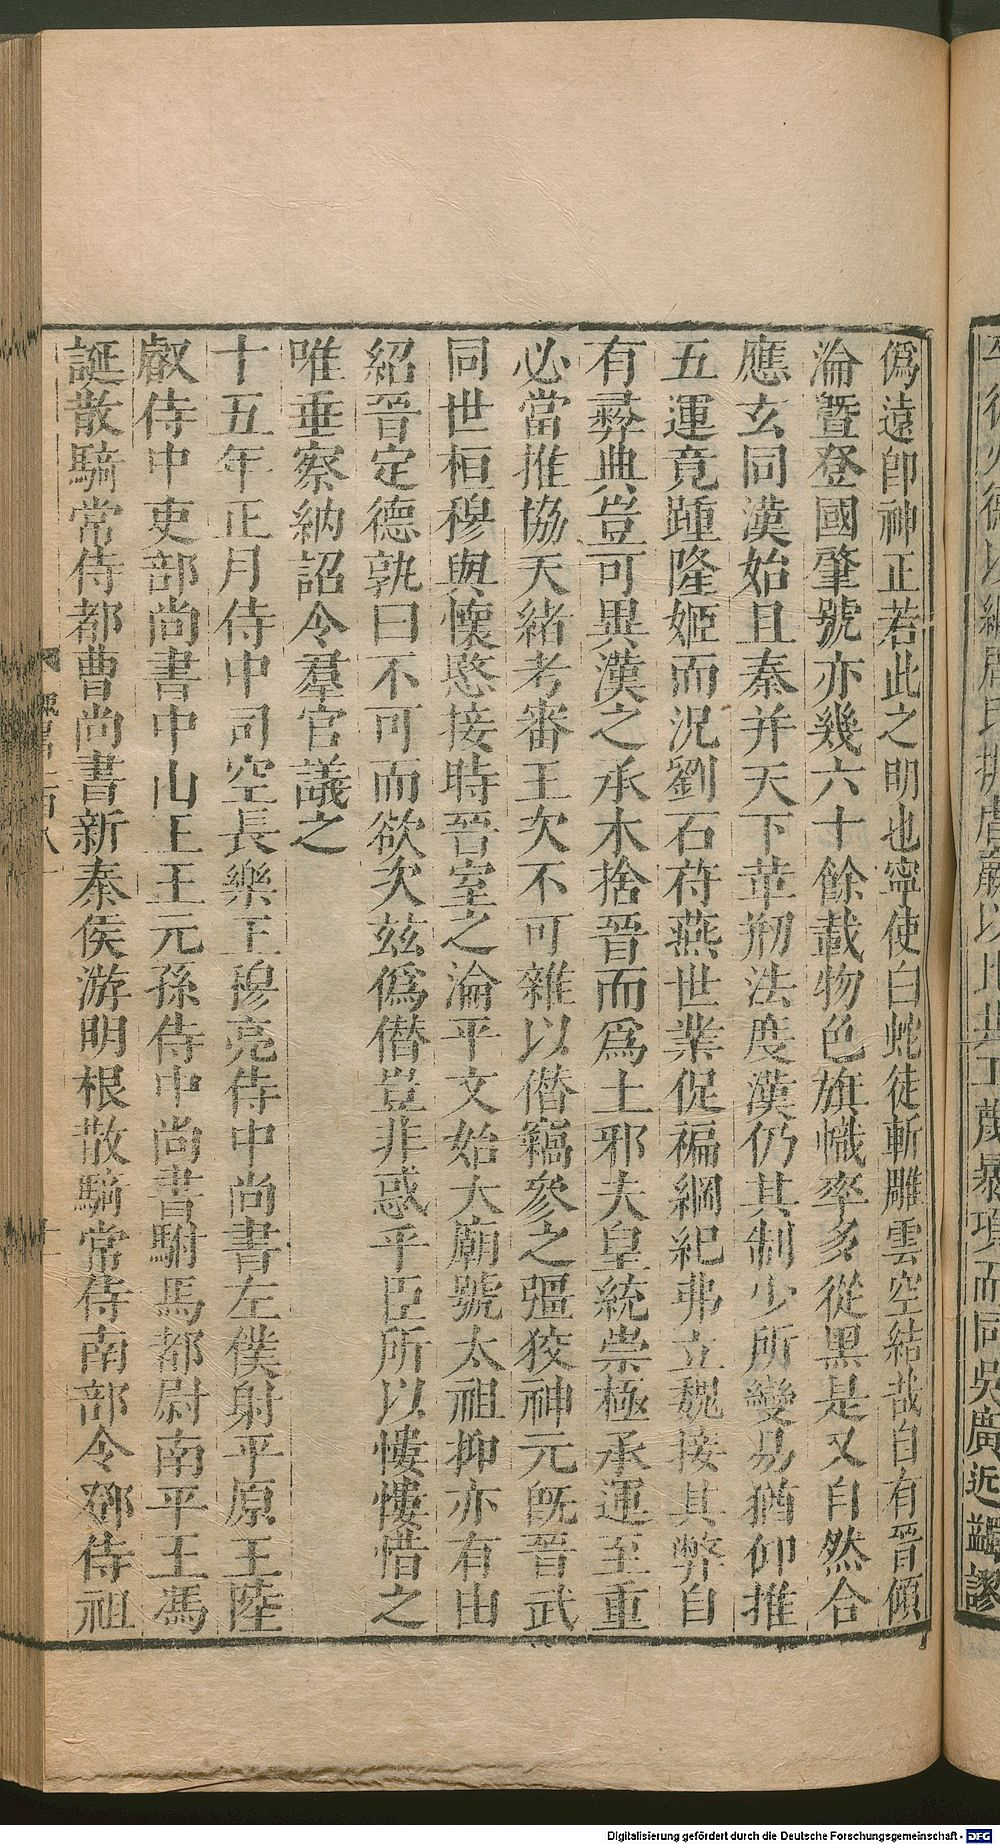 爲遠即神正若此之明也寧使白蛇徒斬雕雲空結哉自有晉傾
淪曁登國肇號亦幾六十餘載物色旗幟率多從黑是又自然合
應玄同漢始且秦并天下革剏法度漢仍其制少所變易猶仰推
五運竟踵隆姬而況劉石苻燕世業促褊綱紀弗立魏接其弊自
有彝典豈可異漢之承木捨晉而爲土邪夫皇統崇極承運至重
必當推協天緒考審王次不可雜以僣竊參之彊狡神元旣晉武
同世桓穆與懷愍接時晉室之淪平文始大廟號太祖抑亦有由
紹晉定德孰曰不可而欲次茲僞僣豈非惑乎臣所以慺慺惜之
唯垂察納詔令羣官議之
十五年正月侍中司空長樂王穆亮侍中尚書左僕射平原王陸
叡侍中吏部尚書中山王王元孫侍中尚書駙馬都尉南平王馮
誕散騎常侍都曹尚書新泰侯游明根散騎常侍南部令鄧侍祖
Digitalisierung gefördert durch die Deutsche Forschungsgemeinschaft - DFG